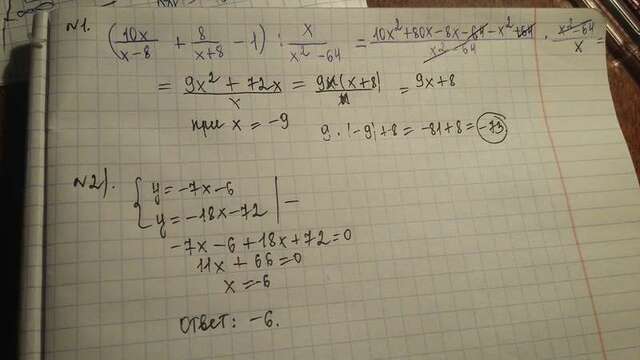 N1. (10x/(x-8) + 8/(x+8) - 1) : x/(x²-64) = (10x²+80x-8x-64-x²+64)/(x²-64) · (x²-64)/x =
= (9x²+72x)/x = 9x(x+8)/x = 9x+8
при x = -9 9·(-9)+8 = -81+8 = -73
N2). { y = -7x-6
y = -18x-72 | -
-7x-6+18x+72=0
11x+66=0
x=-6
Ответ: -6.